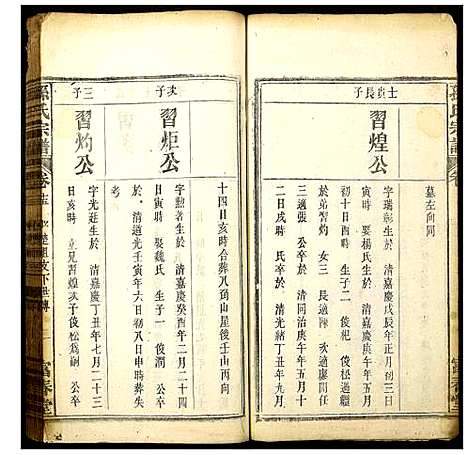 孫氏宗譜
卷
富春堂
墓左向同
士貞長子
習煌公
字瑞彰生於 清嘉慶戊辰年正月初三日
寅時 娶楊氏生於 清嘉慶庚午年五月
初十日酉時 生子二 俊杞 俊松過繼
於弟習灼 女三 長適陳 次適廖
三適張 公卒 清同治庚午年五月十
二日戌時 氏卒於 清光緒丁丑年九月
十四日亥時合葬八角山屋後壬山丙向
次子
習炬公
字勲者生於 清嘉慶癸酉年二月二十四
日寅時 娶魏氏 生子一 俊澗 公卒
於 清道光壬寅年六月初八日申時葬失
考
三子
習灼公
字光廷生於 清嘉慶丁丑年七月二十三
日亥時 立兄習煌次子俊松為嗣 公卒
孫氏宗譜
卷
富春堂